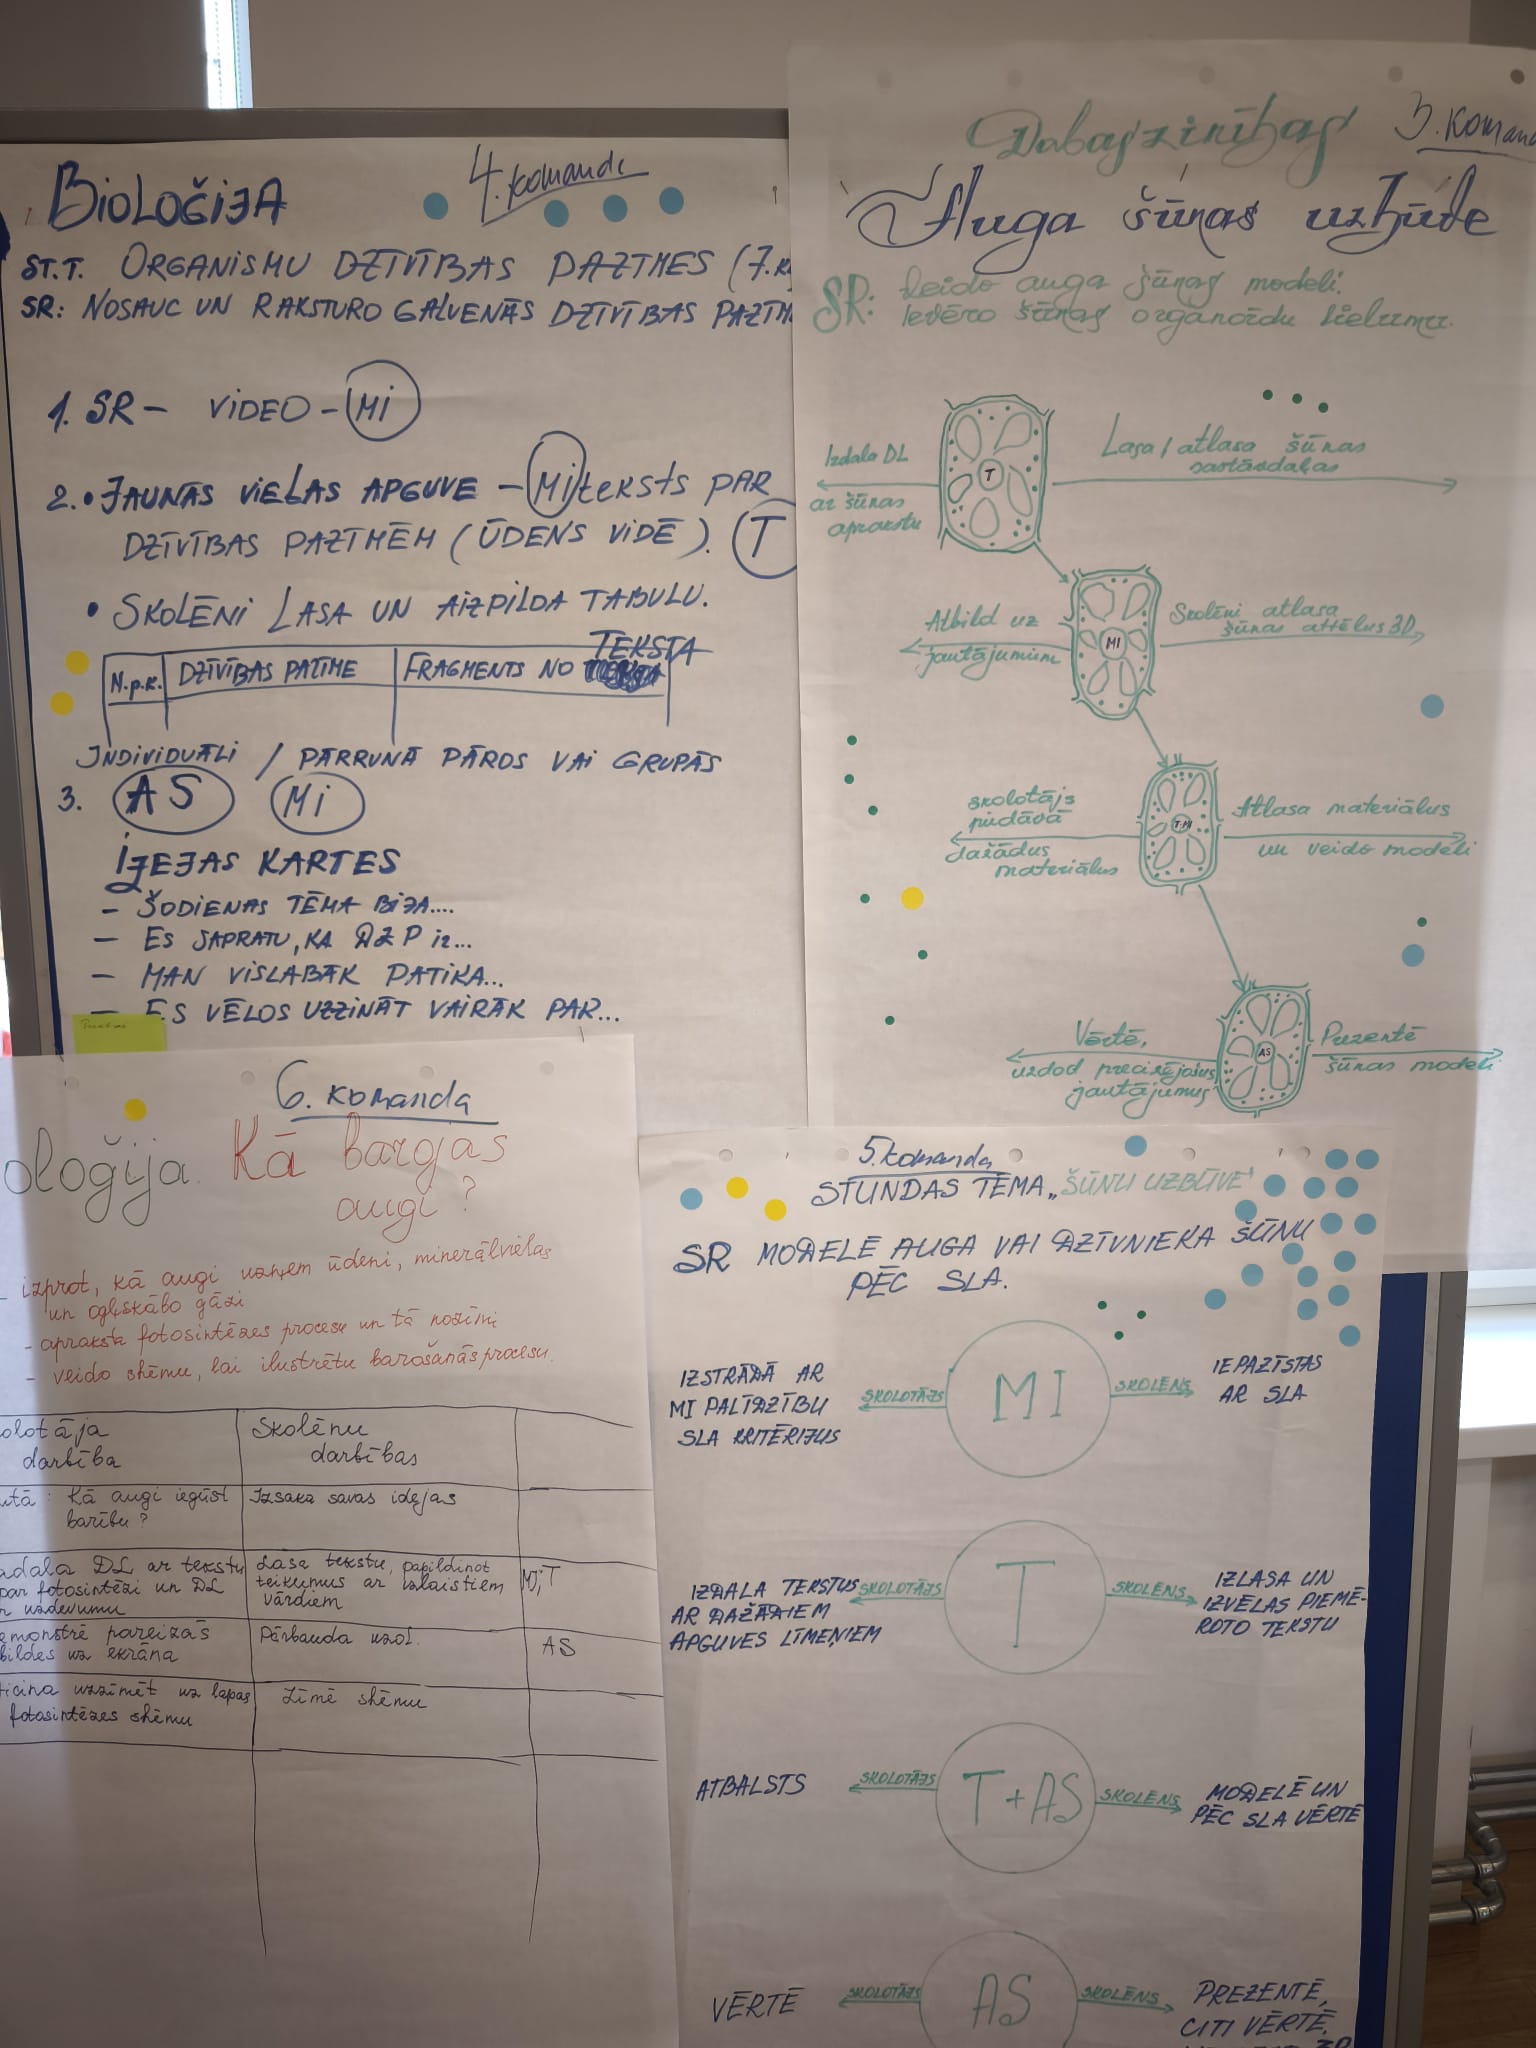 BIOLOĢIJA
4. komanda
ST.T. ORGANISMU DZĪVĪBAS PAZĪMES (7.
SR: NOSAUC UN RAKSTURO GALVENĀS DZĪVĪBAS PAZĪM
1. SR – VIDEO – MI
2. • JAUNĀS VIELAS APGUVE – MI teksts PAR
DZĪVĪBAS PAZĪMĒM (ŪDENS VIDĒ). T
• SKOLĒNI LASA UN AIZPILDA TABULU.
TEKSTA
N.p.k. DZĪVĪBAS PAZĪME FRAGMENTS NO
INDIVIDUĀLI / PĀRRUNĀ PĀROS VAI GRUPĀS
3. AS MI
IZEJAS KARTES
– ŠODIENAS TĒMA BIJA....
– ES SAPRATU, KA DZP ir...
– MAN VISLABĀK PATIKA...
– ES VĒLOS UZZINĀT VAIRĀK PAR...
Dabaszinības
3. Komand
Auga šūnas uzbūve
SR: Veido auga šūnas modeli.
Ievēro šūnas organoīdu lielumu.
Izdala DL
ar šūnas
aprakstu
T
Lasa / atlasa šūnas
sastāvdaļas
Atbild uz
jautājumiem
MI
Skolēni atlasa
šūnas attēlus 3D
skolotājs
piedāvā
dažādus
materiālus
T+MI
Atlasa materiālus
un veido modeli
Vērtē,
uzdod precizējošus
jautājumus
AS
Prezentē
šūnas modeli
6. komanda
oloģija. Kā barojas
augi?
– izprot, kā augi uzņem ūdeni, minerālvielas
un ogļskābo gāzi
– apraksta fotosintēzes procesu un tā nozīmi
– veido shēmu, lai ilustrētu barošanās procesu.
olotāja
darbība
Skolēnu
darbības
utā: Kā augi iegūst
barību?
Izsaka savas idejas
adala DL ar tekstu
par fotosintēzi un DL
r uzdevumu
Lasa tekstu, papildinot
teikumus ar izlaistiem
vārdiem
MI, T
emonstrē pareizās
bildes uz ekrāna
Pārbauda uzd.
AS
icina uzzīmēt uz lapas
fotosintēzes shēmu
Zīmē shēmu
5. komanda
STUNDAS TĒMA „ŠŪNU UZBŪVE"
SR MODELĒ AUGA VAI DZĪVNIEKA ŠŪNU
PĒC SLA.
IZSTRĀDĀ AR
MI PALĪDZĪBU
SLA KRITĒRIJUS
SKOLOTĀJS
MI
SKOLĒNS
IEPAZĪSTAS
AR SLA
IZDALA TEKSTUS
AR DAŽĀDIEM
APGUVES LĪMEŅIEM
SKOLOTĀJS
T
SKOLĒNS
IZLASA UN
IZVĒLAS PIEMĒ-
ROTO TEKSTU
ATBALSTS
SKOLOTĀJS
T+AS
SKOLĒNS
MODELĒ UN
PĒC SLA VĒRTĒ
VĒRTĒ
SKOLOTĀJS
AS
SKOLĒNS
PREZENTĒ,
CITI VĒRTĒ,